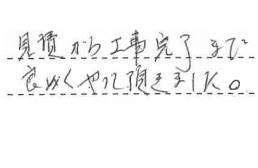 見積から工事完了まで
良くやって頂きました。